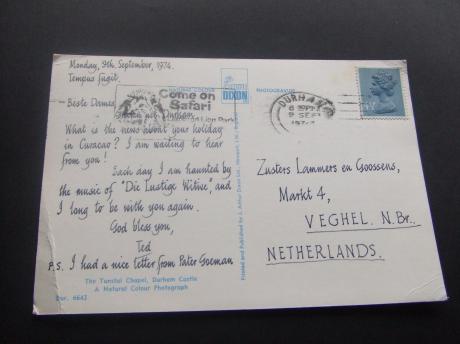 Monday, 9th. September, 1974.
Tempus fugit.
Beste Dames,
What is the news about your holiday
in Curaçao? I am waiting to hear
from you!
Each day I am haunted by
the music of "Die Lustige Witwe", and
I long to be with you again.
God bless you,
Ted
P.S. I had a nice letter from Pater Goeman
The Tunstal Chapel, Durham Castle
A Natural Colour Photograph
Dur. 6643
NATURAL COLOUR
DIXON
PHOTOGRAVURE
Come on
Safari
Lion Park
Printed and Published by J. Arthur Dixon Ltd.
DURHAM
9 SEP
Zusters Lammers en Goossens,
Markt 4,
VEGHEL. N.Br.,
NETHERLANDS.